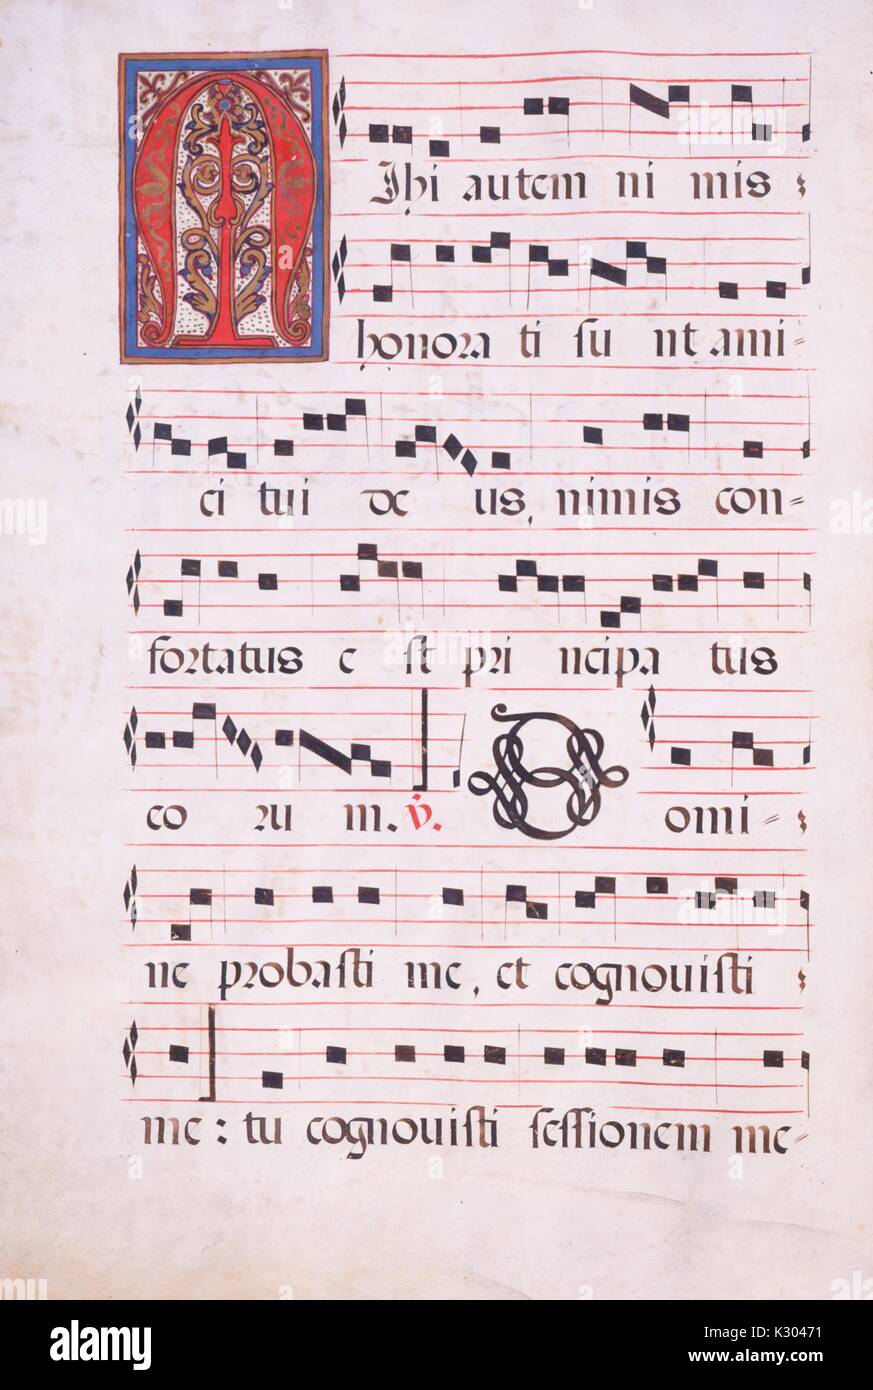 MIhi autem ni mis
honora ti su nt ami=
ci tui de us, nimis con=
fortatus e st pri ncipa tus
eo ru m. V. Domi=
ne probasti me, et cognouisti
me: tu cognouisti sessionem me=
alamy
Image ID: K30471
www.alamy.com